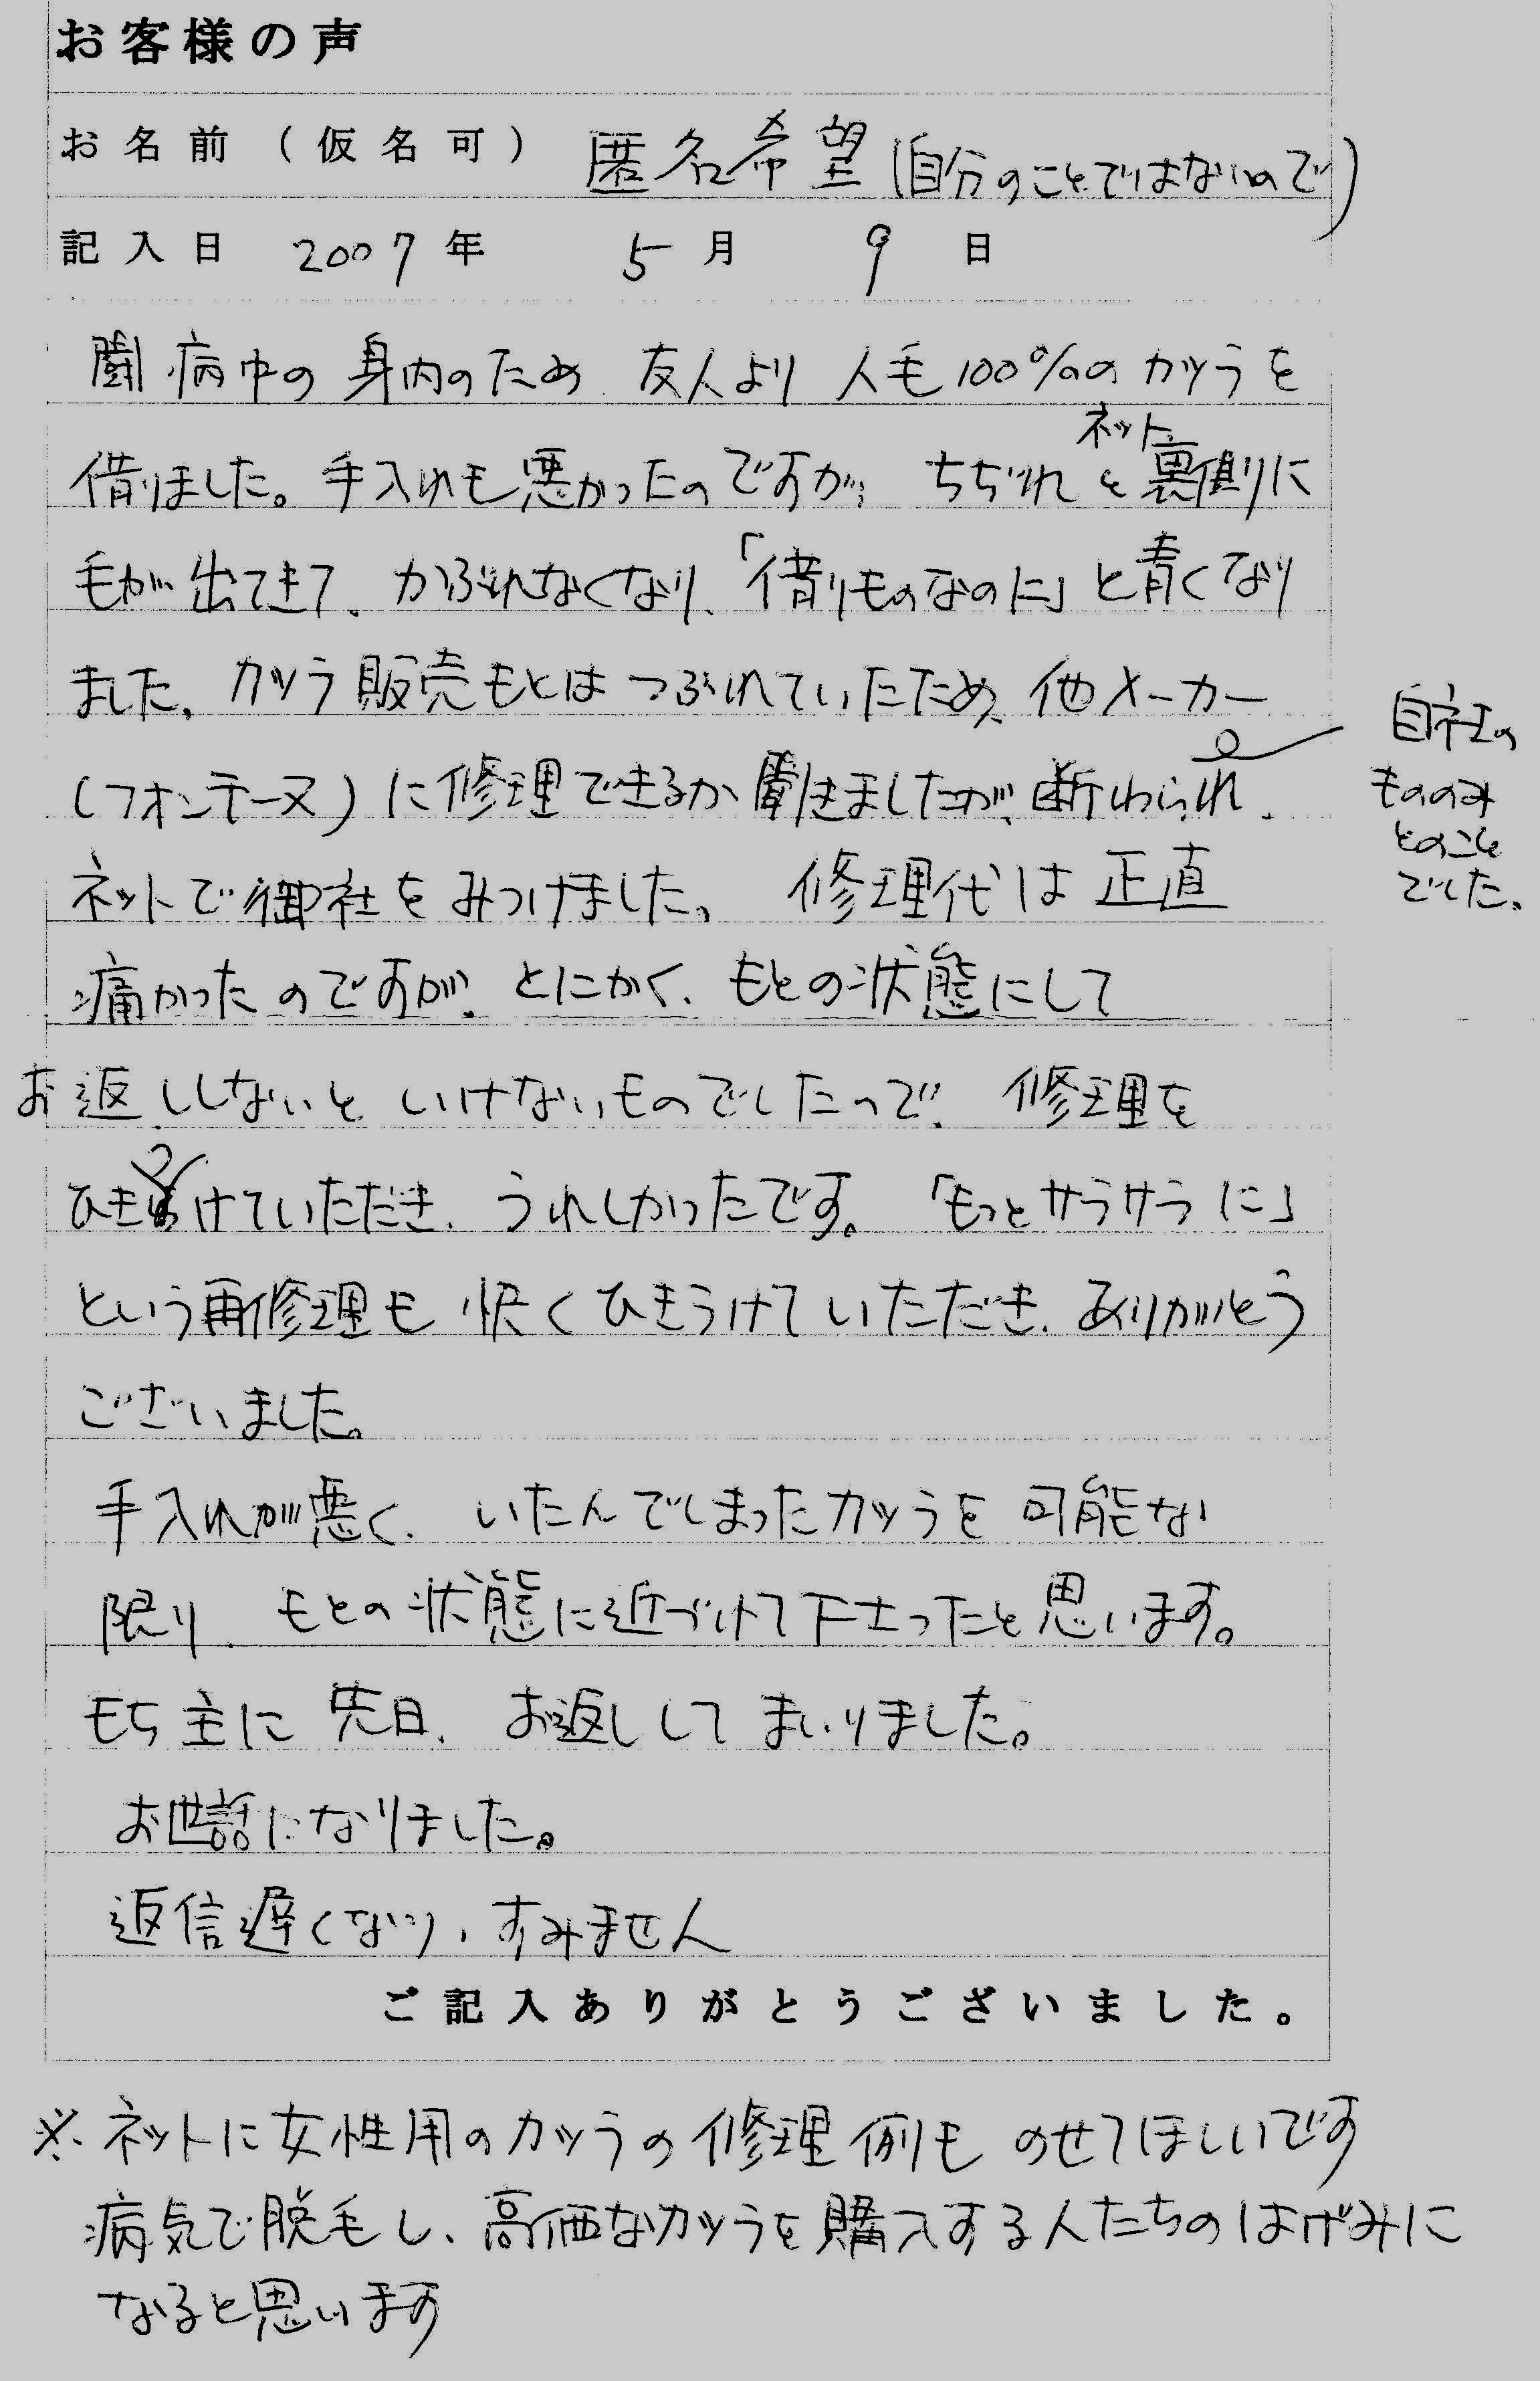 お客様の声
お名前（仮名可） 匿名希望（自分のことではないので）
記入日 2007年 5月 9日
闘病中の身内のため 友人より 人毛100%のカツラを
ネット
借りました。手入れも悪かったのですが、ちぢれと裏側に
毛が出てきて、かぶれなくなり、「借りものなのに」と青くなり
ました。カツラ販売もとはつぶれていたため、他メーカー
（フォンテーヌ）に修理できるか聞きましたが、断わられ、
自社の
もののみ
とのこと
でした。
ネットで御社をみつけました。 修理代は正直
痛かったのですが、とにかく、もとの状態にして
お返ししないといけないものでしたので、修理を
ひきうけていただき、うれしかったです。「もっとサラサラに」
という再修理も快くひきうけていただき、ありがとう
ございました。
手入れが悪く、いたんでしまったカツラを可能な
限り、もとの状態に近づけて下さったと思います。
もち主に先日、お返ししてまいりました。
お世話になりました。
返信遅くなり、すみません
ご記入ありがとうございました。
※ネットに女性用のカツラの修理例ものせてほしいです
病気で脱毛し、高価なカツラを購入する人たちのはげみに
なると思います